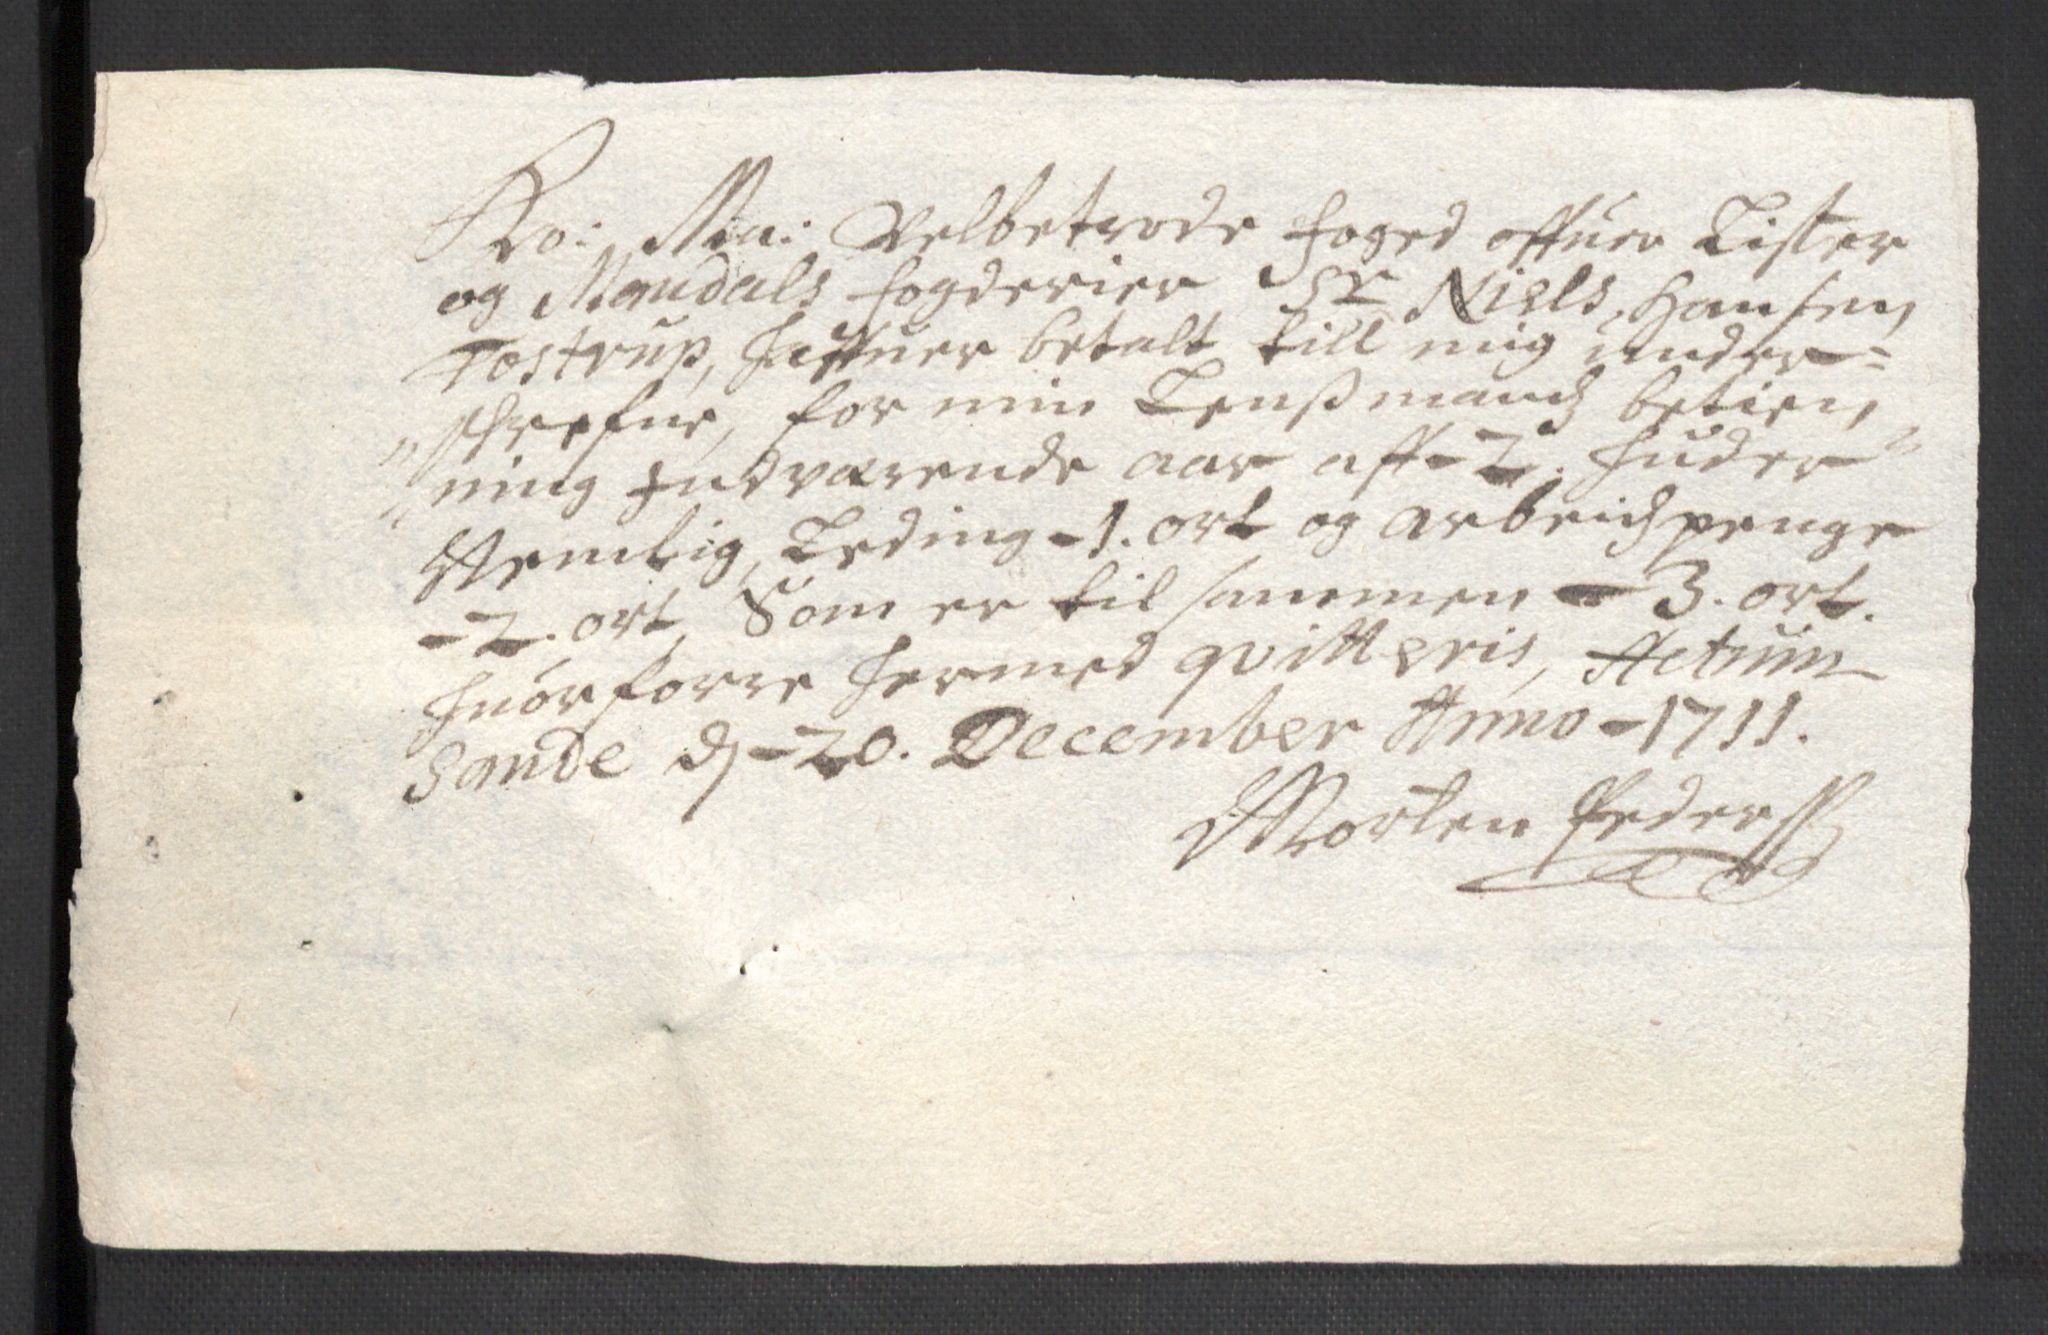 Ko: Ma: Velbetrode foged offuer Lister
og Mandals fogderier Sr Niels Hansen
Tostrup, haffuer betalt till mig under=
„skrefne, for min Lenßmands betien„
„ning Indværende aar aff - 2. huder
Nemlig, Leding - 1. ort og arbeidspenge
- 2. ort, Som er til sammen - 3. ort.
huorforre hermed qvitteris, Actum
Sande d - 20. December Anno - 1711.
Morten Pederß